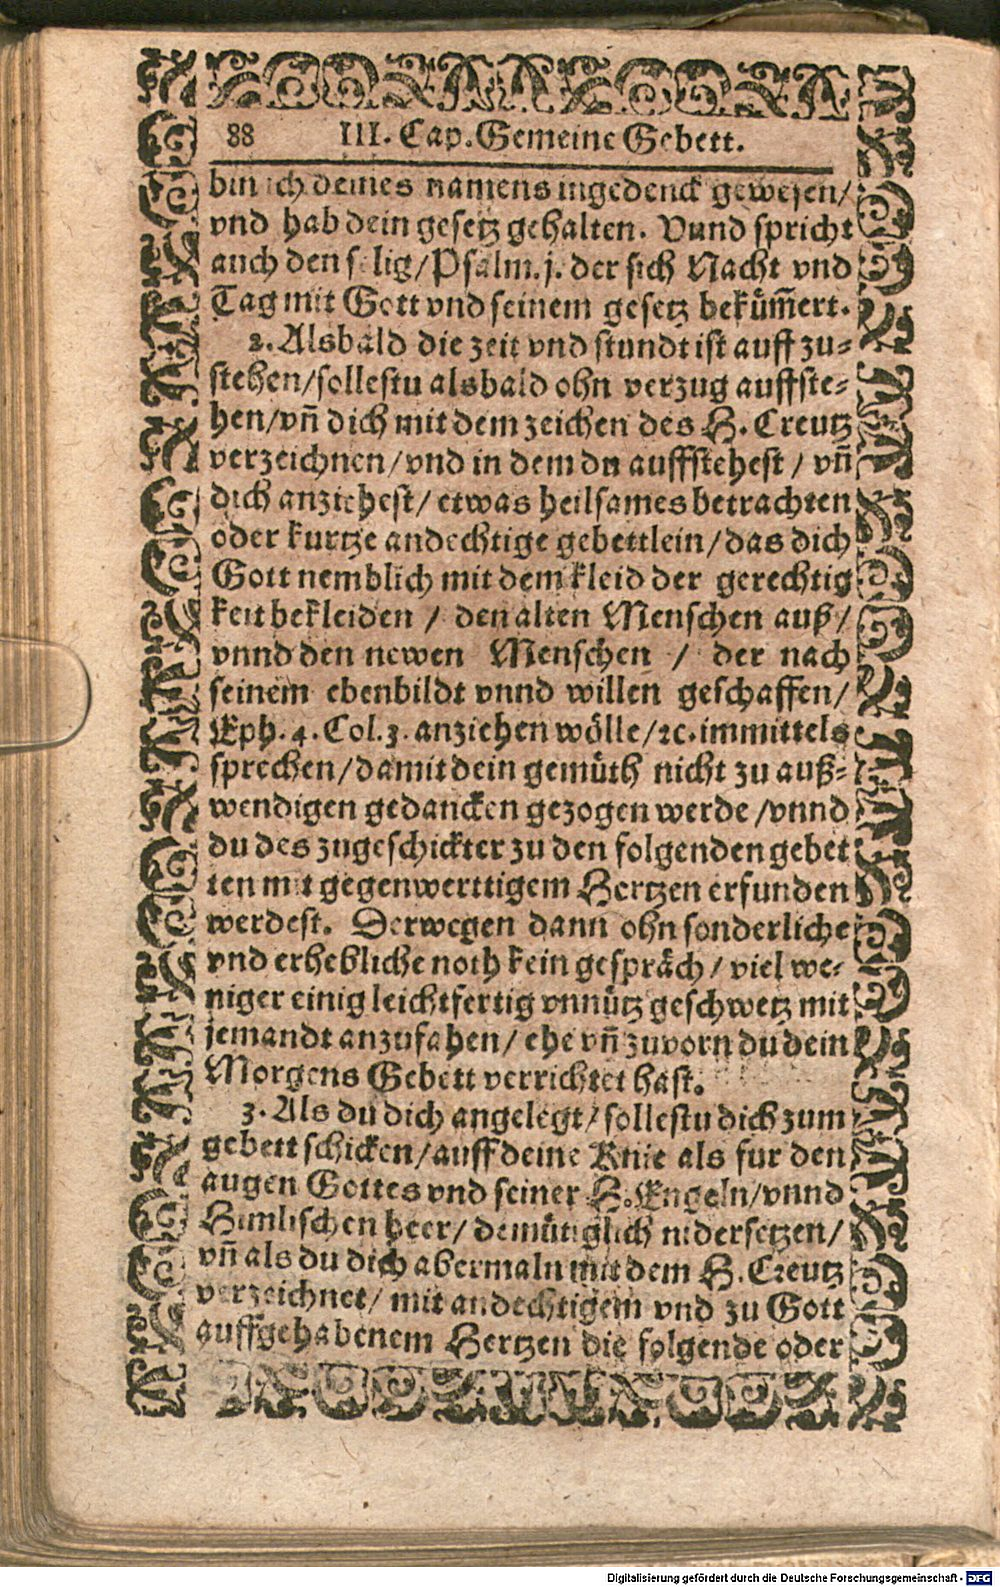 88 III. Cap. Gemeine Gebett.
bin ich deines namens ingedenck gewesen/
vnd hab dein gesetz gehalten. Vnnd spricht
auch den selig/Psalm.j. der sich Nacht vnd
Tag mit Gott vnd seinem gesetz bekům̃ert.
2. Alsbald die zeit vnd stundt ist auff zu-
stehen/sollestu alsbald ohn verzug auffste-
hen/vñ dich mit dem zeichen des H. Creutz
verzeichnen/vnd in dem du auffstehest / vñ
dich anziehest/ etwas heilsames betrachten
oder kurtze andechtige gebettlein/das dich
Gott nemblich mit dem kleid der gerechtig
keit bekleiden / den alten Menschen auß/
vnnd den newen Menschen / der nach
seinem ebenbildt vnnd willen geschaffen/
Eph. 4. Col. 3. anziehen wölle/ꝛc. immittels
sprechen/damit dein gemüth nicht zu auß-
wendigen gedancken gezogen werde/vnnd
du des zugeschickter zu den folgenden gebet
ten mit gegenwerttigem Hertzen erfunden
werdest. Derwegen dann ohn sonderliche
vnd erhebliche noth kein gespräch/ viel we-
niger einig leichtfertig vnnütz geschwetz mit
jemandt anzufahen/ ehe vñ zuvorn du dein
Morgens Gebett verrichtet hast.
3. Als du dich angelegt/sollestu dich zum
gebett schicken/auff deine Knie als fur den
augen Gottes vnd seiner H. Engeln/vnnd
Himlischen heer/ demütiglich nidersetzen/
vñ als du dich abermaln mit dem H. Creutz
verzeichnet/ mit andechtigem vnd zu Gott
auffgehabenem Hertzen die folgende oder
Digitalisierung gefördert durch die Deutsche Forschungsgemeinschaft - DFG